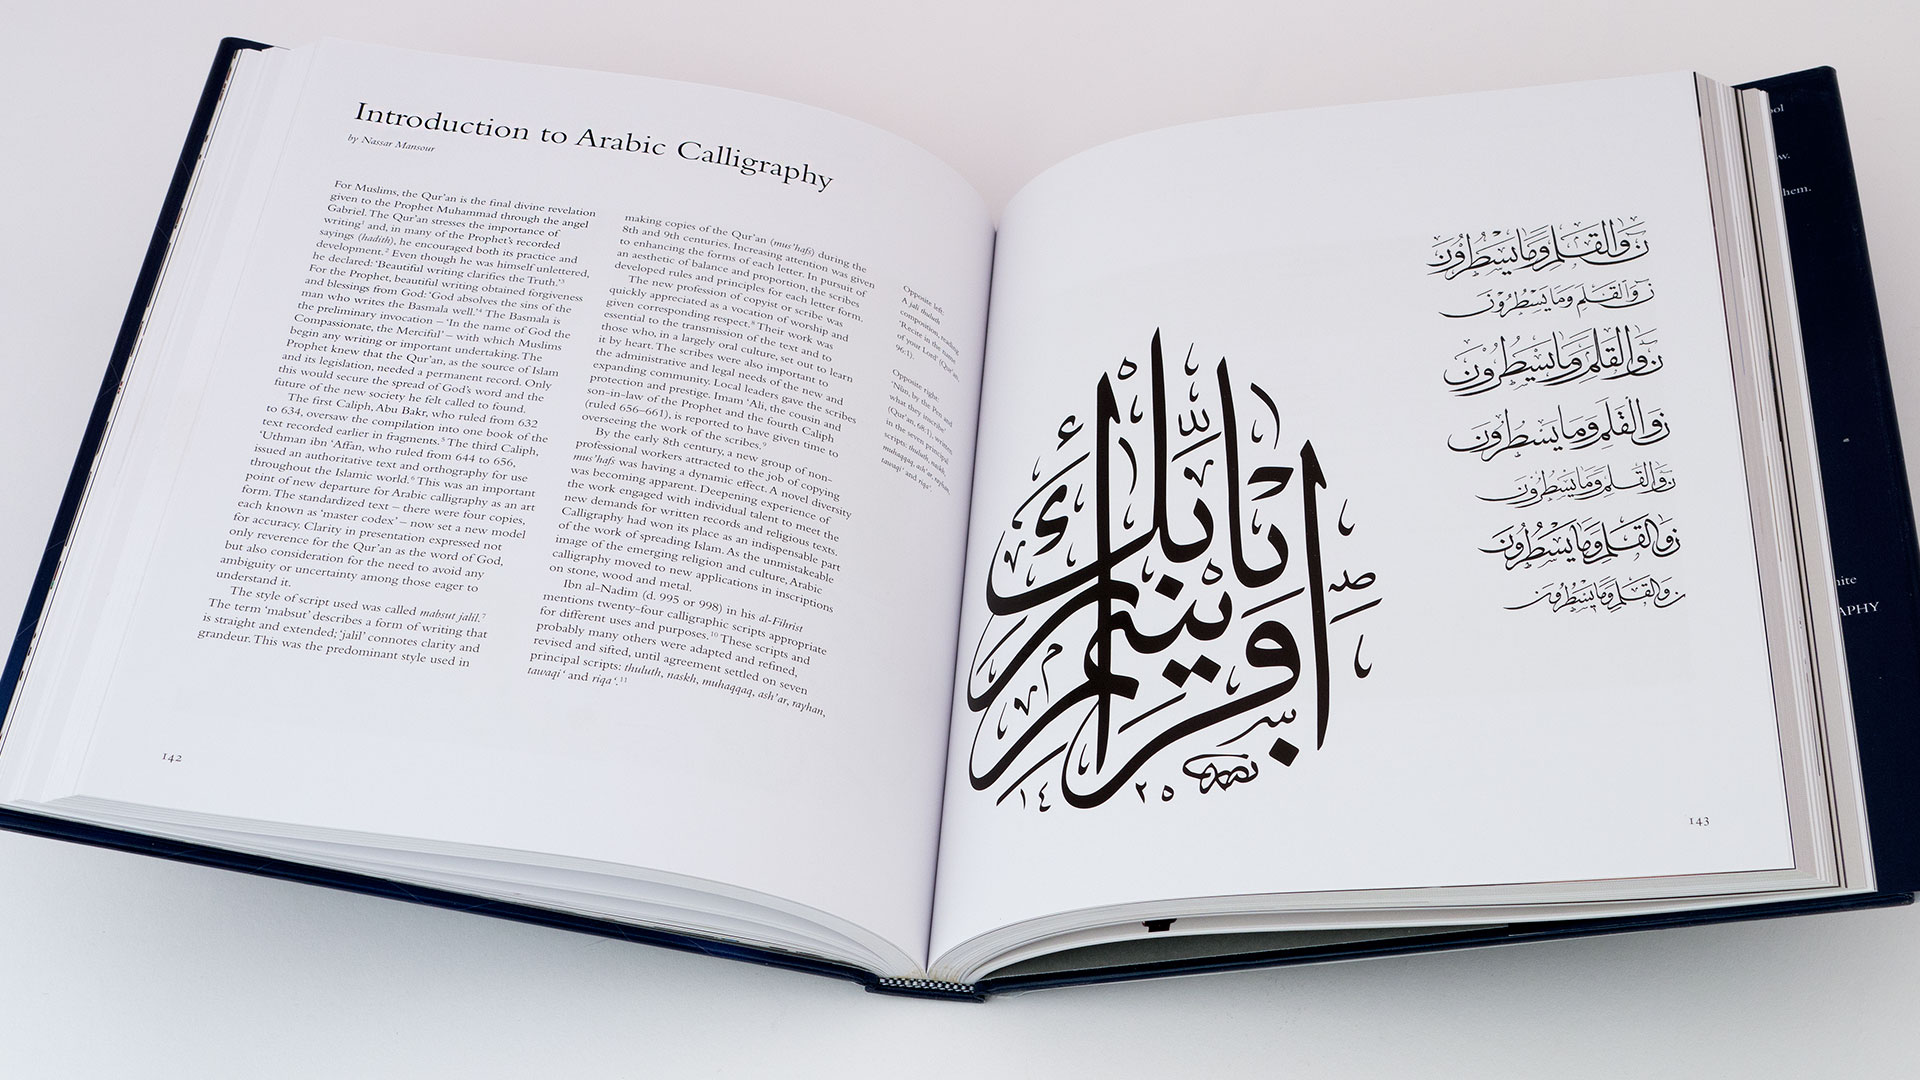 Introduction to Arabic Calligraphy
by Nassar Mansour
For Muslims, the Qur'an is the final divine revelation
given to the Prophet Muhammad through the angel
Gabriel. The Qur'an stresses the importance of
writing¹ and, in many of the Prophet's recorded
sayings (hadith), he encouraged both its practice and
development.² Even though he was himself unlettered,
he declared: 'Beautiful writing clarifies the Truth.'³
For the Prophet, beautiful writing obtained forgiveness
and blessings from God: 'God absolves the sins of the
man who writes the Basmala well.'⁴ The Basmala is
the preliminary invocation – 'In the name of God the
Compassionate, the Merciful' – with which Muslims
begin any writing or important undertaking. The
Prophet knew that the Qur'an, as the source of Islam
and its legislation, needed a permanent record. Only
this would secure the spread of God's word and the
future of the new society he felt called to found.
The first Caliph, Abu Bakr, who ruled from 632
to 634, oversaw the compilation into one book of the
text recorded earlier in fragments.⁵ The third Caliph,
'Uthman ibn 'Affan, who ruled from 644 to 656,
issued an authoritative text and orthography for use
throughout the Islamic world.⁶ This was an important
point of new departure for Arabic calligraphy as an art
form. The standardized text – there were four copies,
each known as 'master codex' – now set a new model
for accuracy. Clarity in presentation expressed not
only reverence for the Qur'an as the word of God,
but also consideration for the need to avoid any
ambiguity or uncertainty among those eager to
understand it.
The style of script used was called mabsut jalil.⁷
The term 'mabsut' describes a form of writing that
is straight and extended; 'jalil' connotes clarity and
grandeur. This was the predominant style used in
making copies of the Qur'an (mus'hafs) during the
8th and 9th centuries. Increasing attention was given
to enhancing the forms of each letter. In pursuit of
an aesthetic of balance and proportion, the scribes
developed rules and principles for each letter form.
The new profession of copyist or scribe was
quickly appreciated as a vocation of worship and
given corresponding respect.⁸ Their work was
essential to the transmission of the text and to
those who, in a largely oral culture, set out to learn
it by heart. The scribes were also important to
the administrative and legal needs of the new and
expanding community. Local leaders gave the scribes
protection and prestige. Imam 'Ali, the cousin and
son-in-law of the Prophet and the fourth Caliph
(ruled 656–661), is reported to have given time to
overseeing the work of the scribes.⁹
By the early 8th century, a new group of non-
professional workers attracted to the job of copying
mus'hafs was having a dynamic effect. A novel diversity
was becoming apparent. Deepening experience of
the work engaged with individual talent to meet the
new demands for written records and religious texts.
Calligraphy had won its place as an indispensable part
of the work of spreading Islam. As the unmistakeable
image of the emerging religion and culture, Arabic
calligraphy moved to new applications in inscriptions
on stone, wood and metal.
Ibn al-Nadim (d. 995 or 998) in his al-Fihrist
mentions twenty-four calligraphic scripts appropriate
for different uses and purposes.¹⁰ These scripts and
probably many others were adapted and refined,
revised and sifted, until agreement settled on seven
principal scripts: thuluth, naskh, muhaqqaq, ash'ar, rayhan,
tawaqi' and riqa'.¹¹
Opposite left:
A jali thuluth
composition, reading
'Recite in the name
of your Lord' (Qur'an,
96:1).
Opposite right:
'Nūn, by the Pen and
what they inscribe'
(Qur'an, 68:1), written
in the seven principal
scripts: thuluth, naskh,
muhaqqaq, ash'ar, rayhan,
tawaqi' and riqa'.
142
اقرأ باسم ربك
١٤٢٥
ن والقلم وما يسطرون
ن والقلم وما يسطرون
ن والقلم وما يسطرون
ن والقلم وما يسطرون
ن والقلم وما يسطرون
ن والقلم وما يسطرون
ن والقلم وما يسطرون
143
hem.